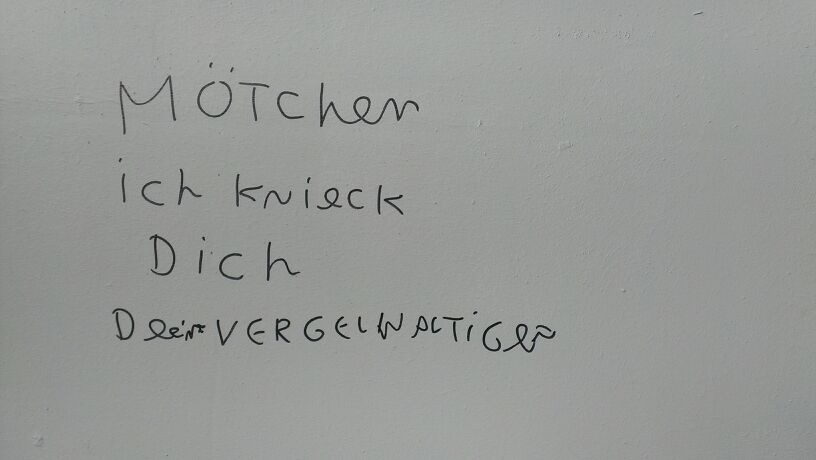 MÖTchen
ich knieck
Dich
Dein VERGELWALTIGEr